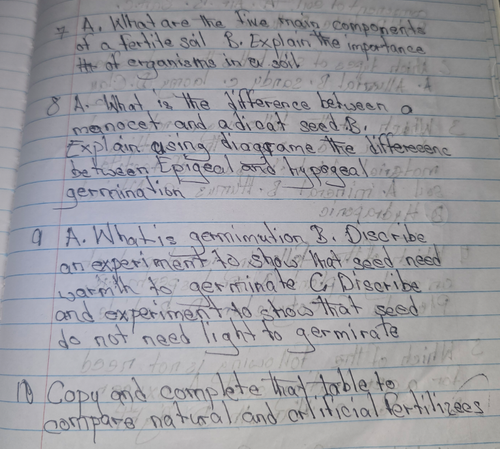 7 A. What are the Five main components
of a fertile soil B. Explain the importance
of organisms in a soil
8 A. What is the difference between a
monocet and a dicat seed B.
Explain using diagrame the differeence
between Epigeal and hypogeal
germination
9 A. What is germimution B. Discribe
an experiment to show that seed need
warmth to germinate C. Discribe
and experiment to show that seed
do not need light to germirate
10 Copy and complete that table to
compare natural and artificial fertilizees